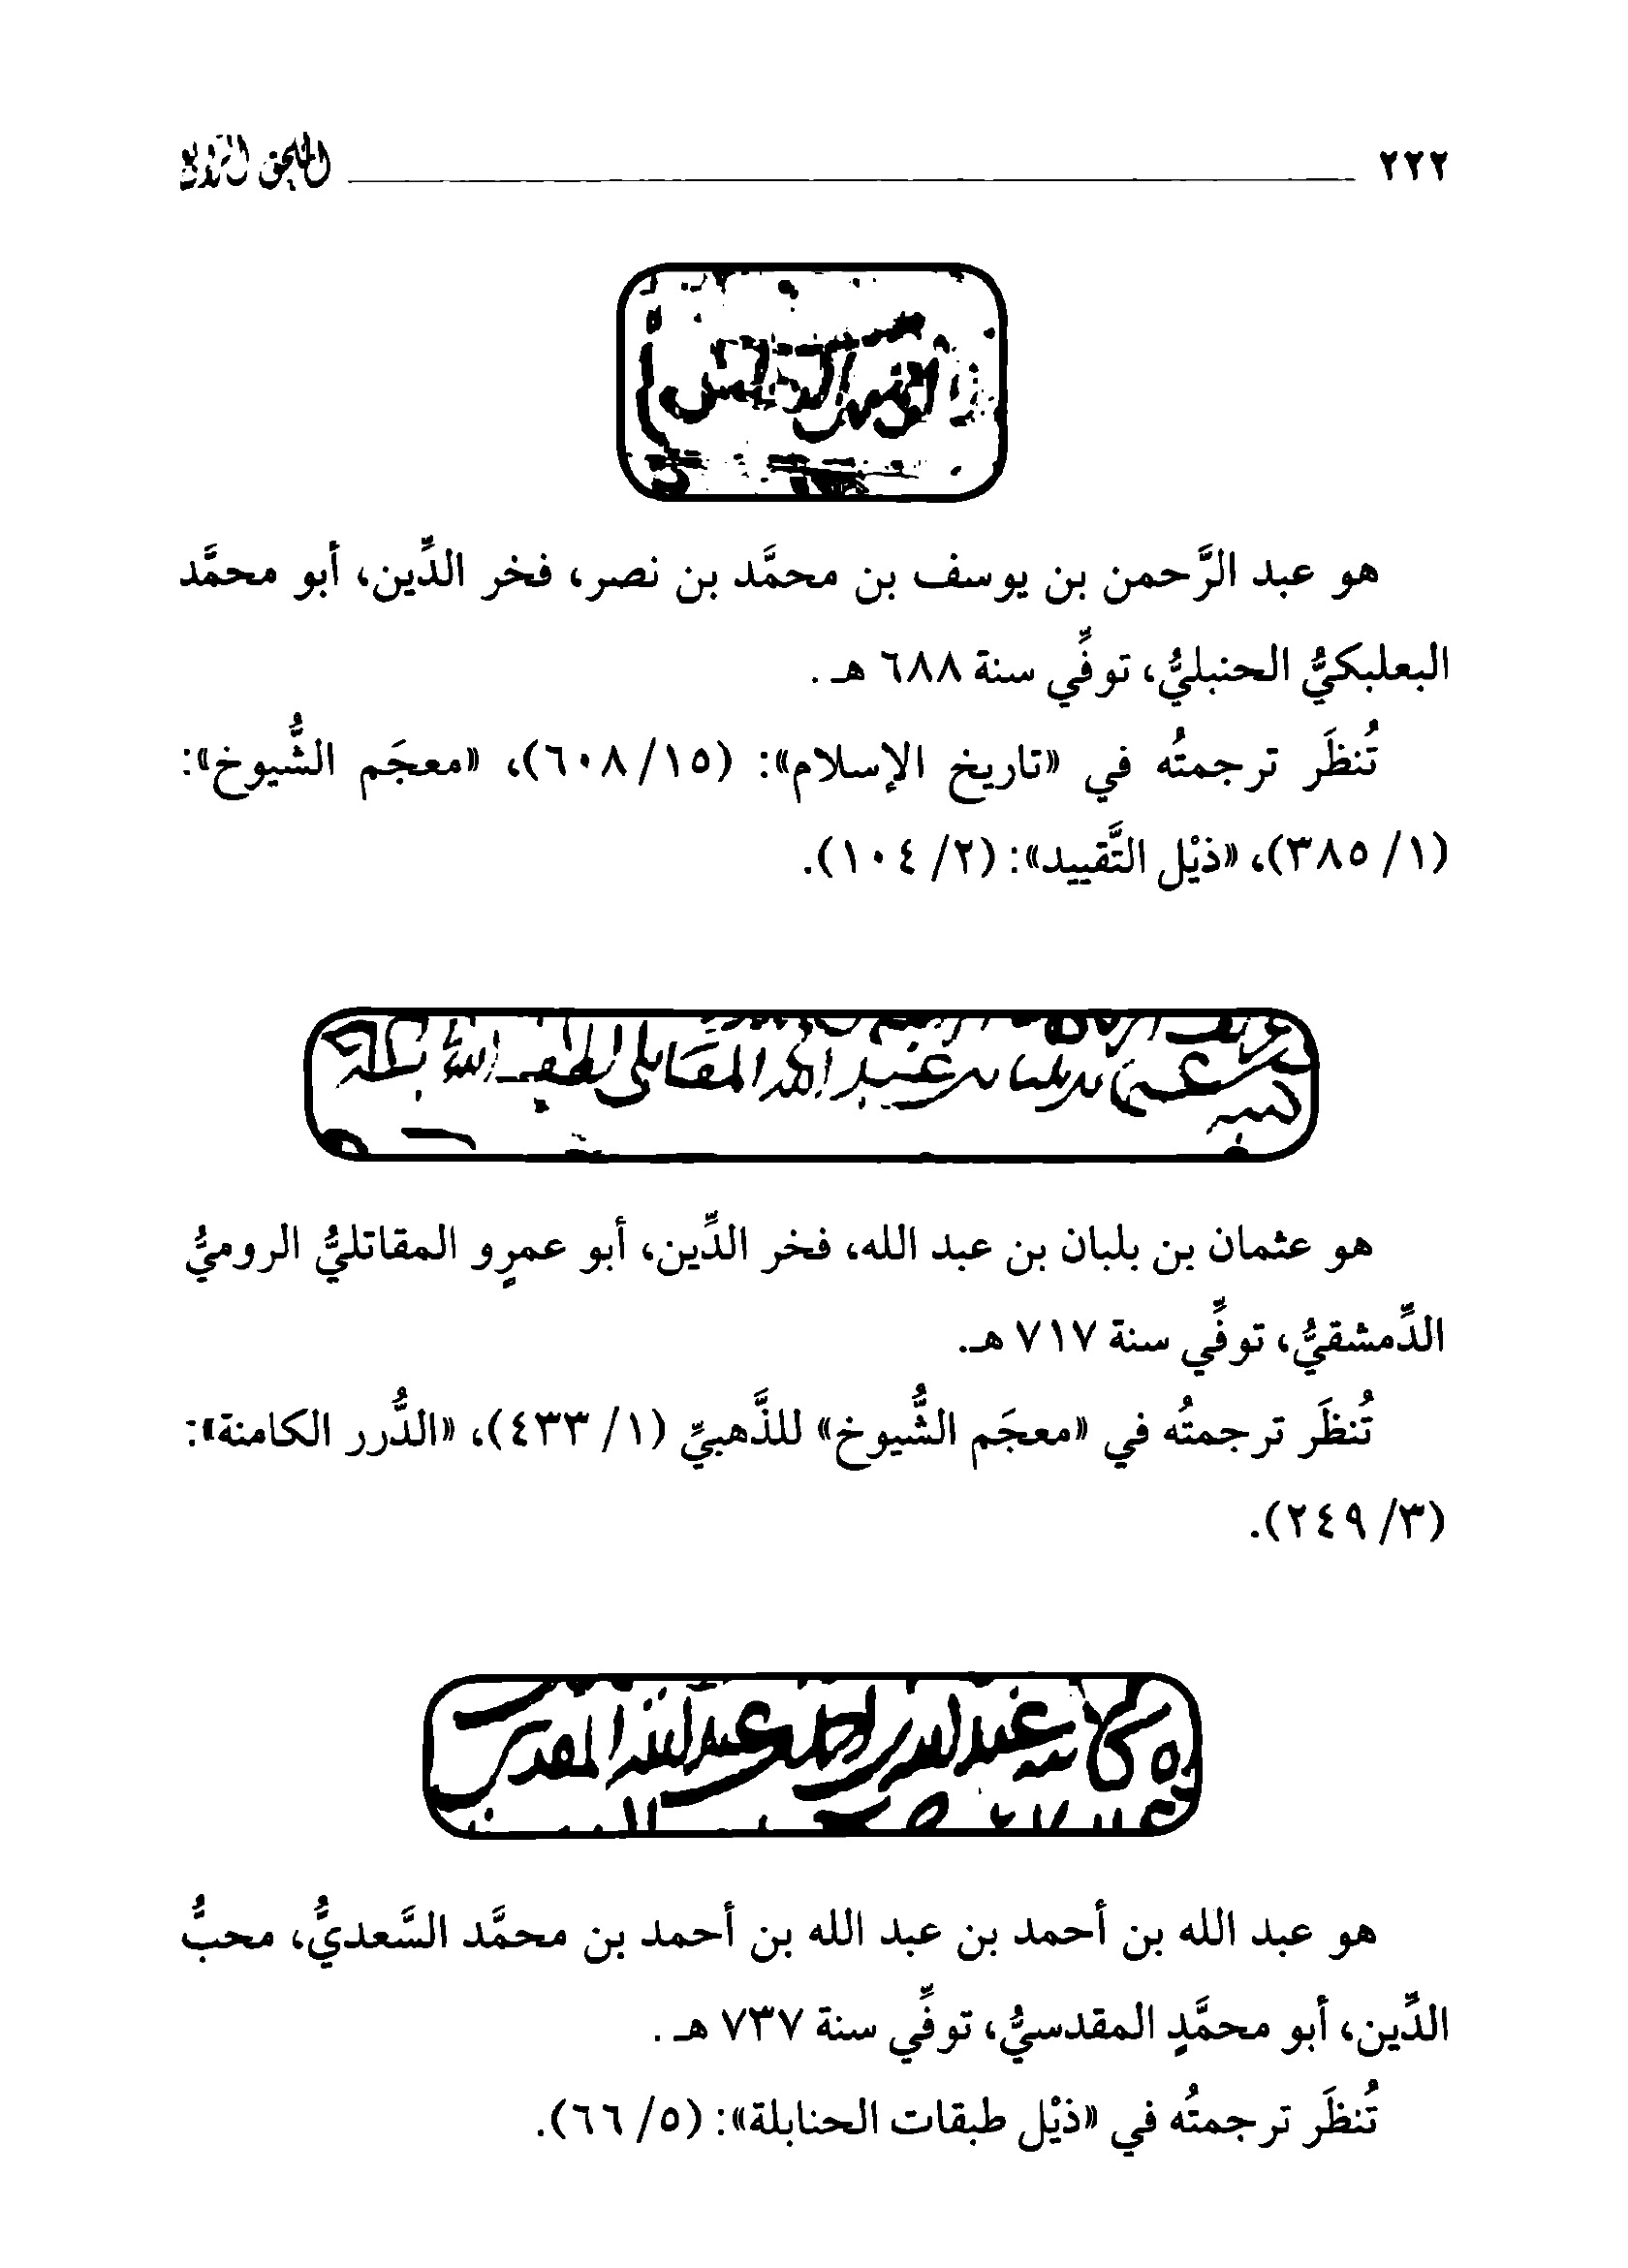 ٢٢٢
هو عبد الرَّحمن بن يوسف بن محمَّد بن نصر، فخر الدِّين، أبو محمَّد
البعلبكيُّ الحنبليُّ، توفِّي سنة ٦٨٨ هـ .
تُنظَر ترجمتُه في «تاريخ الإسلام»: (١٥/ ٦٠٨)، «معجَم الشُّيوخ»:
(١/ ٣٨٥)، «ذيْل التَّقييد»: (٢/ ١٠٤).
بن بلبان بن عبد الله المقاتلي
هو عثمان بن بلبان بن عبد الله، فخر الدِّين، أبو عمرٍو المقاتليُّ الروميُّ
الدِّمشقيُّ، توفِّي سنة ٧١٧ هـ.
تُنظَر ترجمتُه في «معجَم الشُّيوخ» للذَّهبيِّ (١/ ٤٣٣)، «الدُّرر الكامنة»:
(٣/ ٢٤٩).
عبد الله بن احمد بن عبد الله المقدسي
هو عبد الله بن أحمد بن عبد الله بن أحمد بن محمَّد السَّعديُّ، محبُّ
الدِّين، أبو محمَّدٍ المقدسيُّ، توفِّي سنة ٧٣٧ هـ .
تُنظَر ترجمتُه في «ذيْل طبقات الحنابلة»: (٥/ ٦٦).